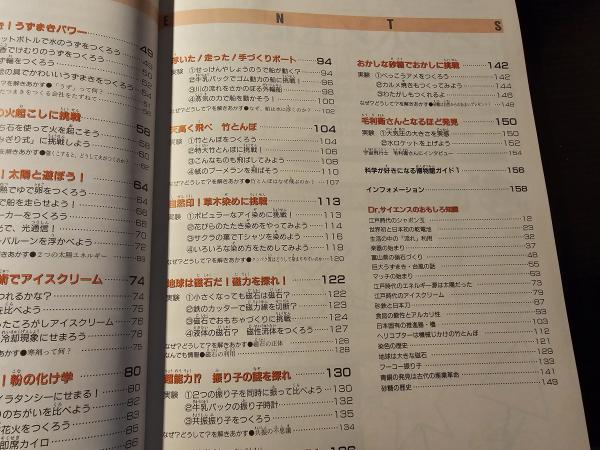 E N T S
で！うずまきパワー
ットボトルで水のうずをつくろう 49
香でけむりのうずをつくろう 50
の火起こしに挑戦 56
ち石を使って火を起こそう
みぎり式」に挑戦しよう
！太陽と遊ぼう！ 64
熱でゆで卵をつくろう 64
で船を走らせよう！
ーカーをつくろう
で、光通信！
バルーンを浮かべよう 72
●2つの太陽エネルギー
術でアイスクリーム 74
つれるかな？ 74
を比べよう 75
ったころがしアイスクリーム 76
冷却現象にせまろう 76
●寒剤って何？
！粉の化け学 80
イラタンシーにせまる！ 80
のちがいを比べよう 83
花火をつくろう 85
即席カイロ 86
浮いた！走った！手づくりボート 94
実験 ①せっけんやしょうのうで船が動く？ 94
②牛乳パックでゴム動力の船に挑戦！ 96
③川の流れをさかのぼる外輪船 98
④蒸気の力で船を動かそう！ 100
なぜ？どうして？を解きあかす●なぜ、船は水に浮くのか？ 102
天高く飛べ 竹とんぼ 104
実験 ①竹とんぼをつくろう 104
②特大竹とんぼに挑戦！ 106
③こんなものも飛ばしてみよう 108
④紙のブーメランを飛ばそう 110
なぜ？どうして？を解きあかす●竹とんぼはなぜ飛ぶのか？ 107
自然印！草木染めに挑戦 113
実験 ①ポピュラーなアイ染めに挑戦！ 113
②花びらのたたき染めをやってみよう 114
③サクラの葉でTシャツを染めよう 116
④いろいろな染め方をためしてみよう 118
地球は磁石だ！磁力を探れ！ 122
実験 ①小さくなっても磁石は磁石？ 122
②鉄のカッターで磁力線を切断？ 123
③磁石でおもちゃづくりに挑戦 124
④液体の磁石？ 磁性流体をつくろう 127
なぜ？どうして？を解きあかす●磁石の正体 126
なんでも情報●磁石の利用 128
超能力!? 振り子の謎を探れ 130
実験 ①2つの振り子を同時に振って比べよう 130
②牛乳パックの振り子時計 132
③共振振り子をつくろう 135
なぜ？どうして？を解きあかす●共振の不思議 134
おかしな砂糖でおかしに挑戦 142
実験 ①べっこうアメをつくろう 142
②カルメ焼きもつくってみよう 144
③わたがしもつくれるよ 146
毛利衛さんとなるほど発見 150
実験 ①大気圧の大きさを実感 150
②水ロケットを上げよう 152
宇宙飛行士 毛利衛さんにインタビュー 154
科学が好きになる博物館ガイド！ 156
インフォメーション 158
Dr.サイエンスのおもしろ知識
江戸時代のシャボン玉 12
世界初と日本初の乾電池 23
生活の中の「流れ」利用 32
楽器の始まり 37
富山県の磁石づくり 48
巨大うずまき・台風の話 55
マッチの始まり 63
江戸時代のエネルギー源は太陽だった 73
江戸時代のアイスクリーム 79
砂鉄と日本刀 87
食品の酸性とアルカリ性 93
日本固有の推進器・櫓 103
ヘリコプターは機械じかけの竹とんぼ 112
染色の歴史 121
地球は大きな磁石 129
フーコー振り子 133
青銅の発見は古代の産業革命 141
砂糖の歴史 149